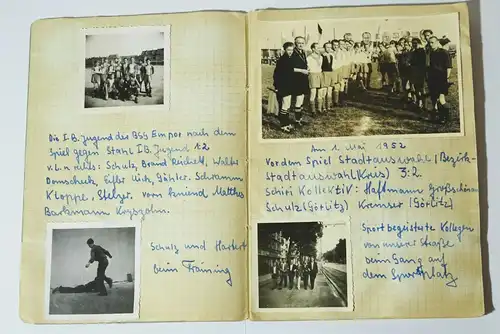 Die I.B. Jugend des BSG Empor nach dem
Spiel gegen Stahl I.B. Jugend 1:2
v.l.n. rechts: Schulz, Brand
Domscheck, Gühler. Schramm
Kloppe, Stelzer. vorn kniend Matthes
Barkmann
Schulz und Harkert
beim Training
Am 1. Mai 1952
Vor dem Spiel Stadtauswahl / Bezirk-
Stadtauswahl (Kreis) 3:2.
Schiri Kollektiv: Haffmann Großschönau
Schulz (Görlitz) Kremser (Görlitz)
Sportbegeisterte Kollegen
von unserer Straße
beim Gang auf
dem Sportplatz